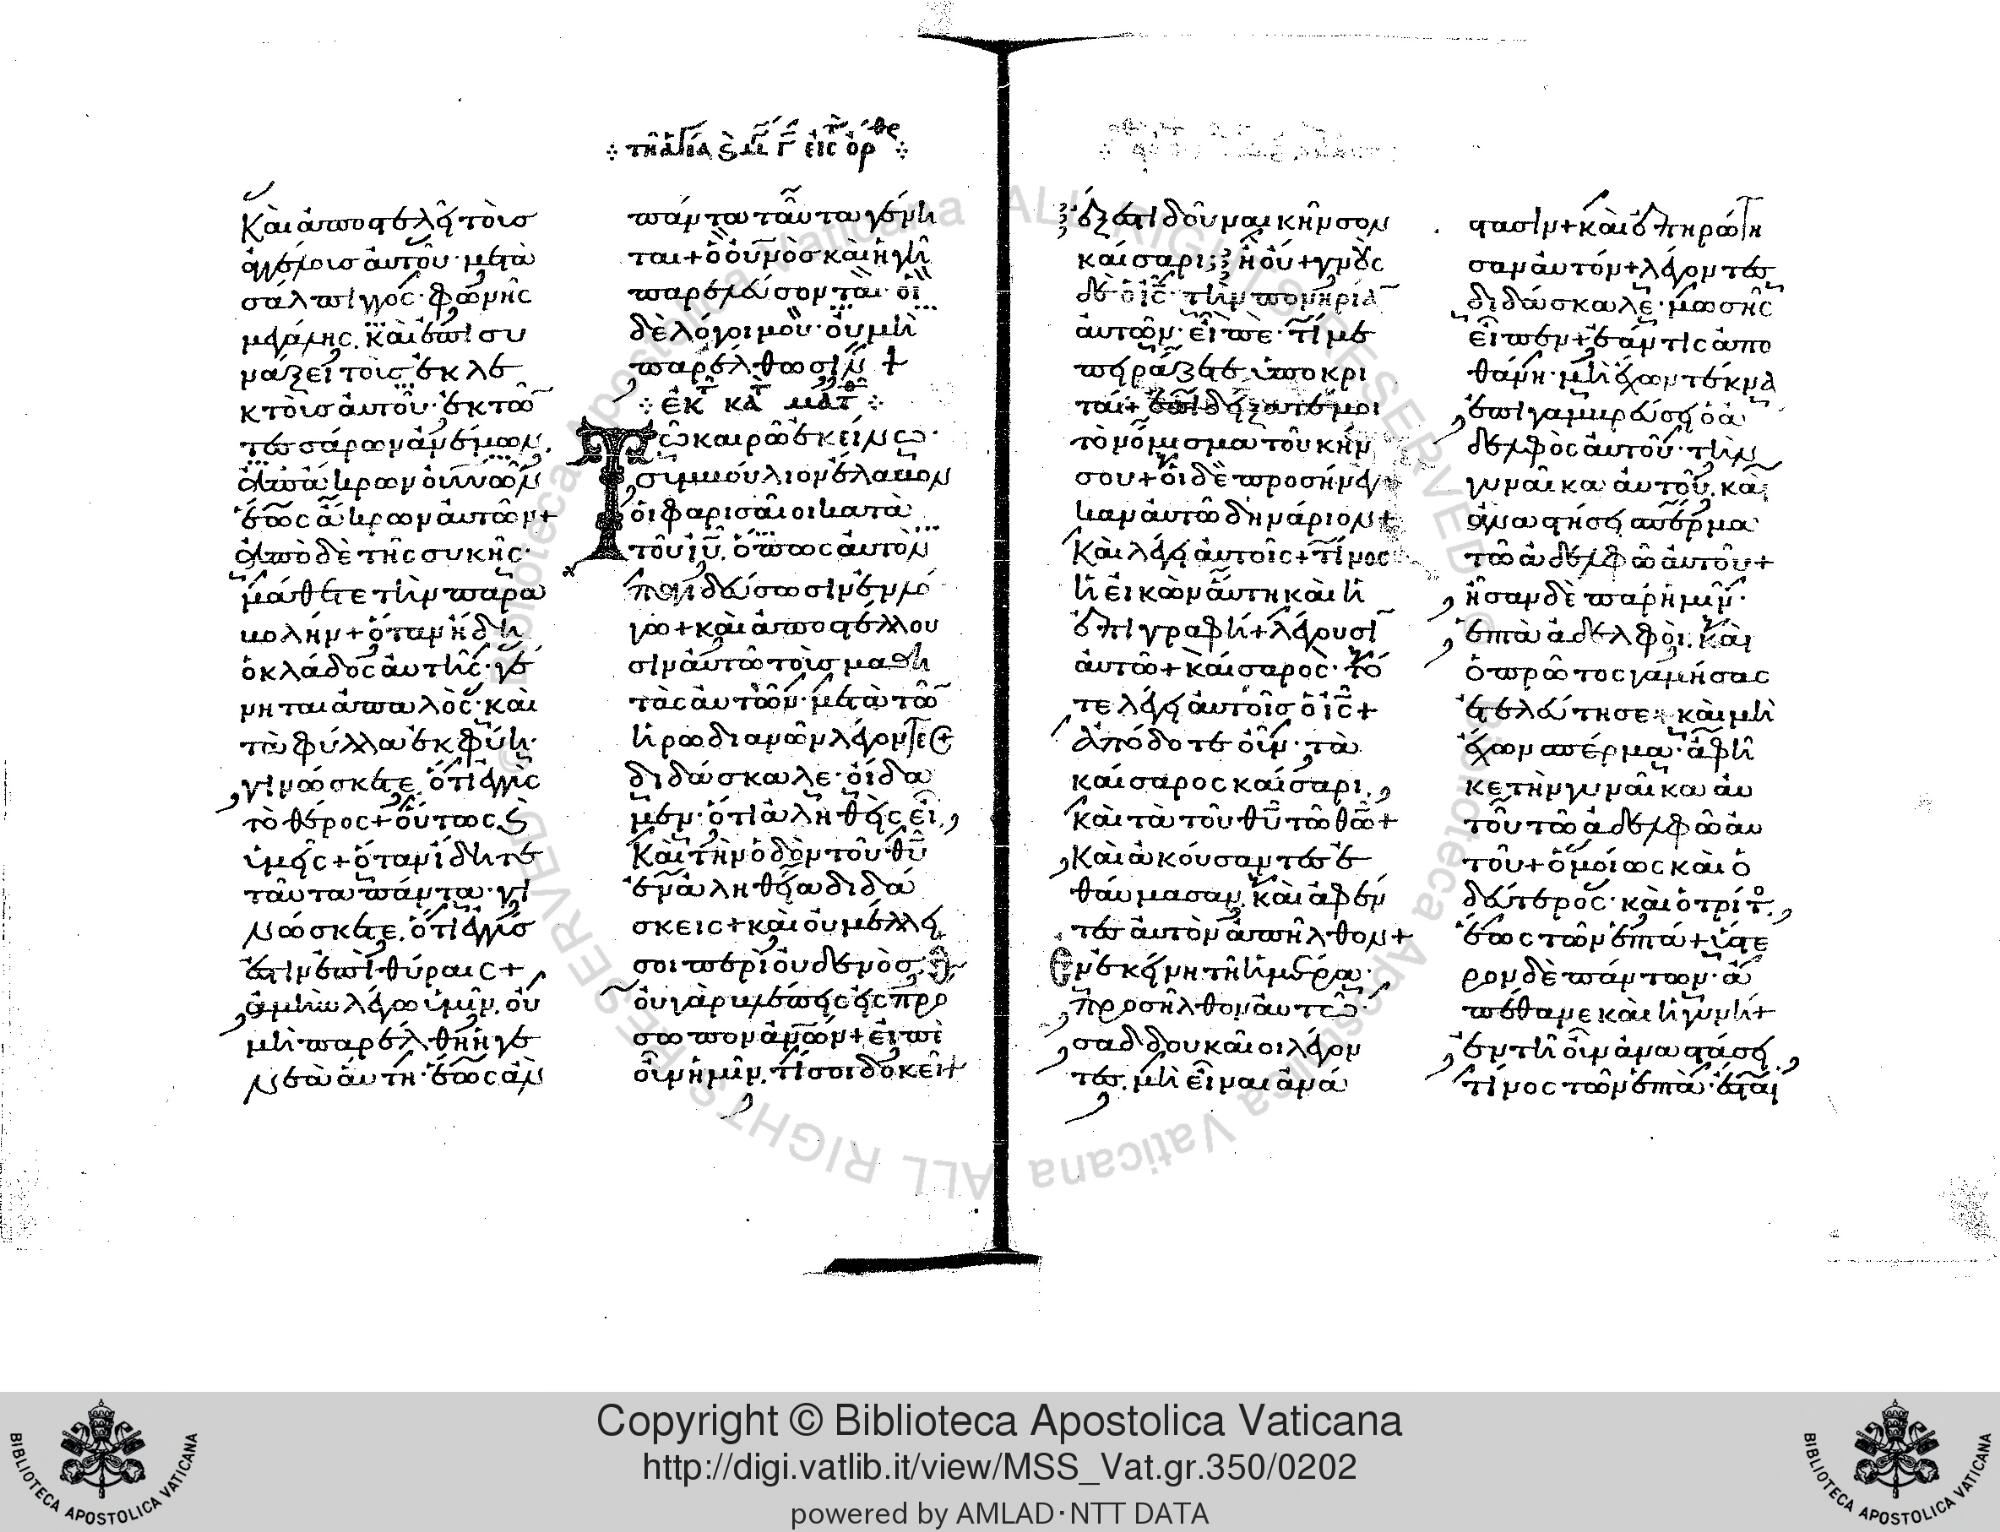 τῆ ἁγία ϛ μ γ εἰς ὀρθ
Καὶ ἀποστελεῖ τοὺσ
ἀγγέλουσ αὐτοῦ· μετὰ
σάλπιγγος φωνῆς
μεγάλης. καὶ ἐπισυ
νάξει τοὺσ ἐκλε
κτοὺσ αὐτοῦ· ἐκ τῶ
τεσσάρων ἀνέμων.
ἀπὸ ἄκρων οὐνῶν
ἕως ἄκρων αὐτῶν+
ἀπὸ δὲ τῆς συκῆς·
μάθετε τὴν παρα
βολήν+ ὅταν ἤδη
ὁ κλάδος αὐτῆς· γέ
νηται ἁπαλὸς· καὶ
τὰ φύλλα ἐκφύη·
γινώσκετε, ὅτι ἐγγὺς
τὸ θέρος+ οὕτως ϗ
ὑμεῖς+ ὅταν ἴδητε
ταῦτα πάντα· γι
νώσκετε, ὅτι ἐγγύσ
ἐστιν ἐπὶ θύραις+
ἀμὴν λέγω ὑμῖν, οὐ
μὴ παρέλθη ἡ γε
νεὰ αὕτη· ἕως ἂν
πάντα ταῦτα γένη
ται+ ὁ οὐνὸσ καὶ ἡ γῆ
παρελεύσονται· οἱ
δὲ λόγοι μου· οὐ μὴ
παρέλθωσιν +
ἐκ τ κατ ματθ
Τῶ καιρῶ ἐκείνω·
συμβούλιον ἔλαβον
οἱ φαρισαῖοι κατὰ
τοῦ ιυ, ὅπως αὐτὸν
παγιδεύσωσιν ἐν λό
γω+ καὶ ἀποστέλλου
σιν αὐτῶ τοὺσ μαθη
τὰς αὐτῶν· μετὰ τῶ
ἡρωδιανῶν λέγοντες
διδάσκαλε· οἴδα
μεν· ὅτι ἀληθὴς εἶ,
Καὶ τὴν ὁδὸν τοῦ θυ
ἐν ἀληθεία διδά
σκεις+ καὶ οὐ μέλλει
σοι περὶ οὐδενὸσ.
οὐ γὰρ βλέπεις εἰς πρό
σωπον ἀνων+ εἰπὲ
οὖν ἡμῖν, τί σοι δοκεῖ+
ἔξεστι δοῦναι κῆνσον
καίσαρι; ἢ οὔ+ γνοὺς
δὲ ὁ ις· τὴν πονηρίαν
αὐτῶν· εἶπε· τί με
πειράζετε ὑποκρι
ταί+ ἐπιδείξατέ μοι
τὸ νόμισμα τοῦ κήν
σου+ οἱ δὲ προσήνεγ
καν αὐτῶ δηνάριον+
Καὶ λέγει αὐτοῖς+ τίνος
ἡ εἰκὼν αὕτη καὶ ἡ
ἐπιγραφή+ λέγουσι
αὐτῶ+ καίσαρος· τό
τε λέγει αὐτοῖσ ὁ ις+
ἀπόδοτε οὖν· τὰ
καίσαρος καίσαρι.
Καὶ τὰ τοῦ θυ τῶ θω+
Καὶ ἀκούσαντεσ ἐ
θαύμασαν, καὶ ἀφέν
τεσ αὐτὸν ἀπῆλθον+
Ἐν ἐκείνη τῆ ἡμέρα·
προσῆλθον αὐτῶ·
σαδδουκαῖοι λέγον
τεσ, μὴ εἶναι ἀνά
στασιν+ καὶ ἐπηρώτη
σαν αὐτόν+ λέγοντεσ
διδάσκαλε· μωσῆς
εἶπεν+ ἐάν τις ἀπο
θάνη· μὴ ἔχων τέκνα
ἐπιγαμβρεύσει ὁ ἀ
δελφὸς αὐτοῦ· τὴν
γυναῖκα αὐτοῦ. καὶ
ἀναστήσει σπέρμα
τῶ ἀδελφῶ αὐτοῦ+
ἦσαν δὲ παρ ἡμῖν·
ἑπτὰ ἀδελφοὶ. καὶ
ὁ πρῶτος γαμήσας
ἐτελεύτησε· καὶ μὴ
ἔχων σπέρμα· ἀφῆ
κε τὴν γυναῖκα αὐ
τοῦ τῶ ἀδελφῶ αὐ
τοῦ+ ὁμοίως καὶ ὁ
δεύτερος· καὶ ὁ τρίτος,
ἕως τῶν ἑπτά+ ὕστε
ρον δὲ πάντων· ἀ
πέθανε καὶ ἡ γυνή+
ἐν τῆ οὖν ἀναστάσει
τίνος τῶν ἑπτὰ· ἔσται
Copyright © Biblioteca Apostolica Vaticana
http://digi.vatlib.it/view/MSS_Vat.gr.350/0202
powered by AMLAD·NTT DATA
BIBLIOTECA APOSTOLICA VATICANA
BIBLIOTECA APOSTOLICA VATICANA